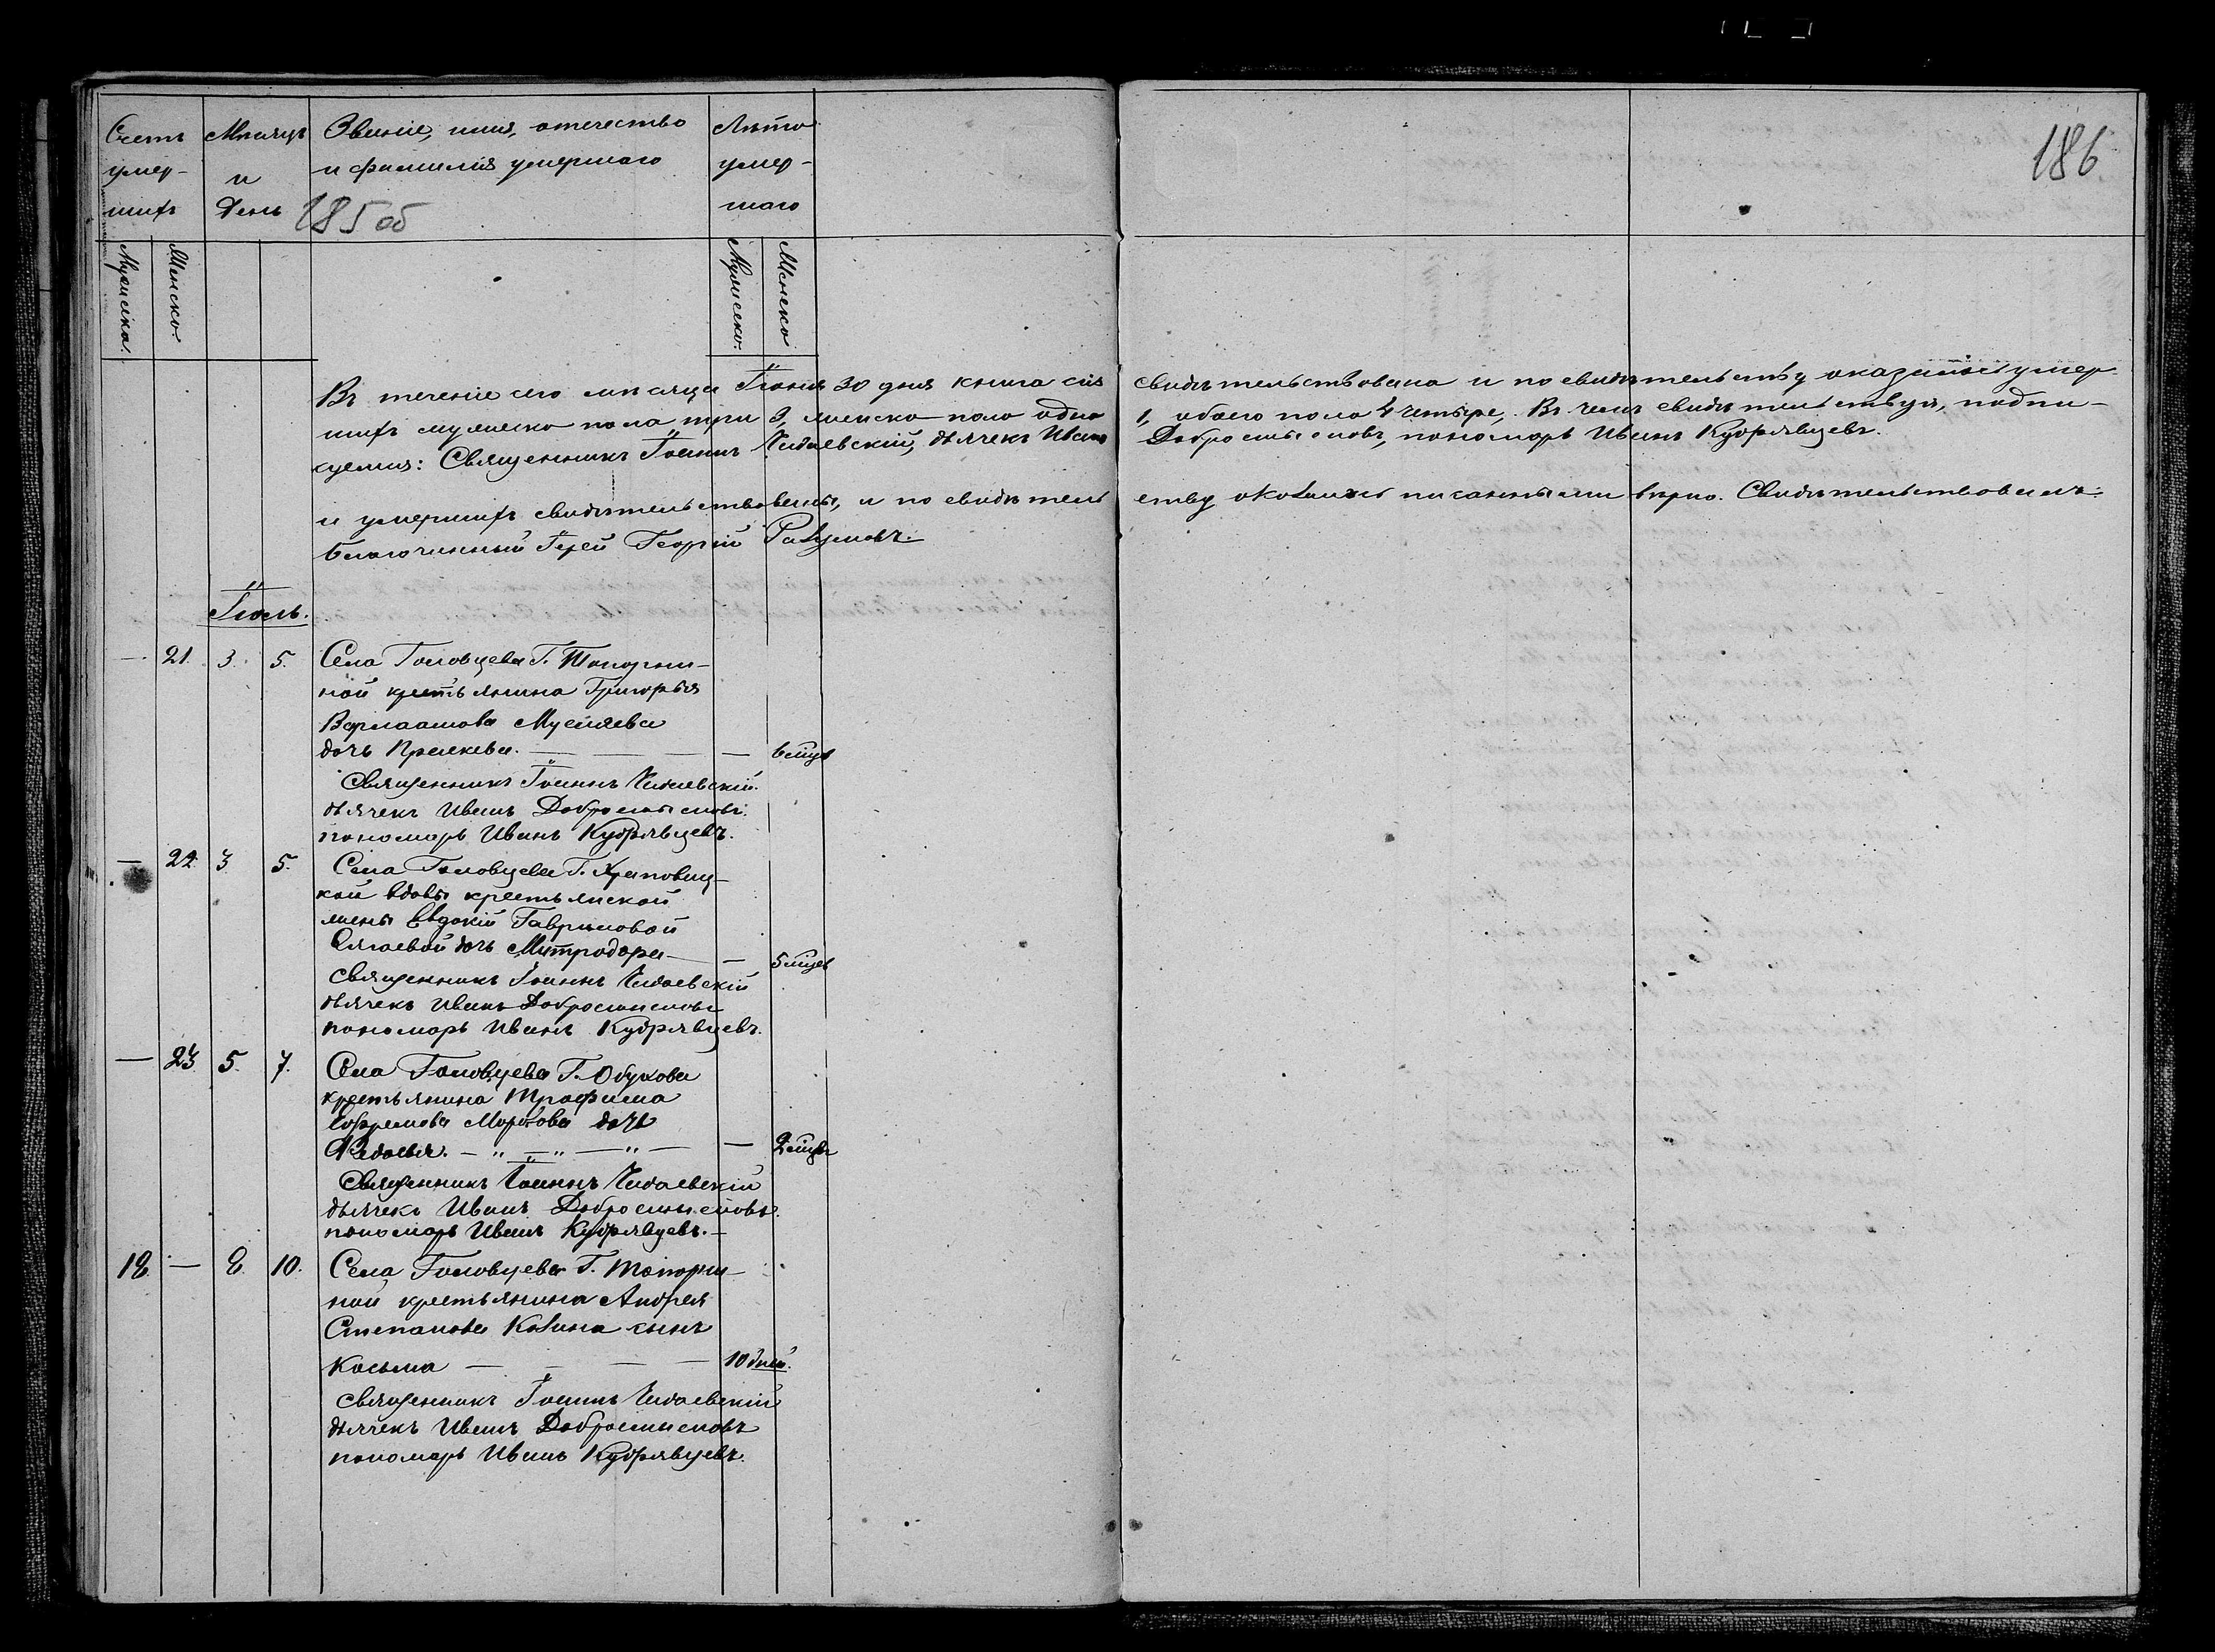 186
Счетъ умер-шихъ
Мѣсяцъ и День
Званіе, имя, отечество
и фамилія умершаго
Лѣто умер-шаго
185 об
Мужска.
Женско.
Мужеско.
Женско
Въ теченіе сего мѣсяца Іюня 30 дня книга сія свидѣтельствована и по свидѣтельству оказалось умер-
шихъ мужеско пола три 3, женско поло одна 1, обоего поло 4 четыре. Въ чемъ свидѣтельствуя, подпи-
суемся: Священникъ Іоаннъ Чидаевскій, дьячекъ Иванъ Добросмысловъ, пономарь Иванъ Кудрявцевъ.
и умершихъ свидѣтельствованы, и по свидѣтель ству оказались писанными вѣрно. Свидѣтельствовалъ:
Благочинный Іерей Георгій Разумовъ.
Іюль.
— 21. 3. 5. Села Головцева Г. Топорни-
ной крестьянина Григорья
Варлаамова Мусяева
дочь Праскева. — — — — 6 мцв
Священникъ Іоаннъ Чидаевскій.
дьячекъ Иванъ Добросмысловъ.
пономарь Иванъ Кудрявцевъ.
— 22. 3. 5. Села Головцева Г. Храповиц-
кой вдовы крестьянской
жены Евдокіи Гавриловой
Сягаевой дочь Митродора — — 5 мцев
Священникъ Іоаннъ Чидаевскій
дьячекъ Иванъ Добросмысловъ
пономарь Иванъ Кудрявцевъ.
— 23. 5. 7. Села Головцева Г. Обухова
крестьянина Трофима
Ефремова Морозова дочь
Федосья. — " — " — " — — 2 мцвъ
Священникъ Іоаннъ Чидаевскій
дьячекъ Иванъ Добросмысловъ.
пономарь Иванъ Кудрявцевъ. —
18. — 8. 10. Села Головцева Г. Топорни-
ной крестьянина Андрея
Степанова Козина сынъ
Косьма — — — — 10 дней.
Священникъ Іоаннъ Чидаевскій
дьячекъ Иванъ Добросмысловъ
пономарь Иванъ Кудрявцевъ.